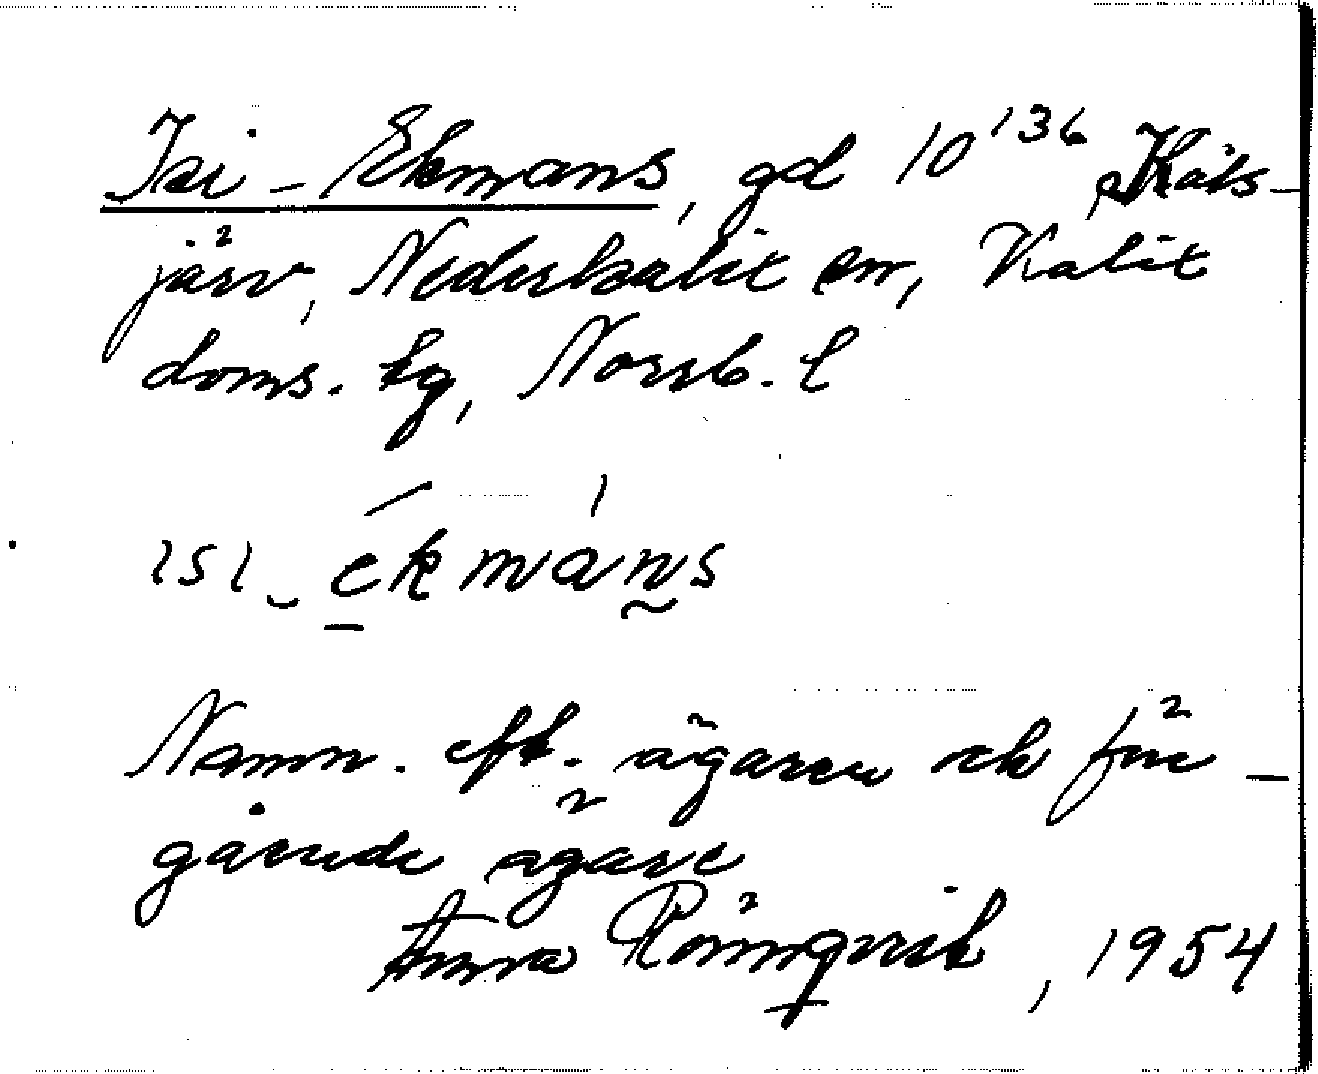 Isi-Ekmans, gd 10¹³⁶, Räks-
järv, Nederkalix sn, Kalix
doms. tg, Norrb. l
ɪsɪ‿ékmàns
Namn. eft. ägaren och före-
gående ägare
Anna Rönnqvist, 1954